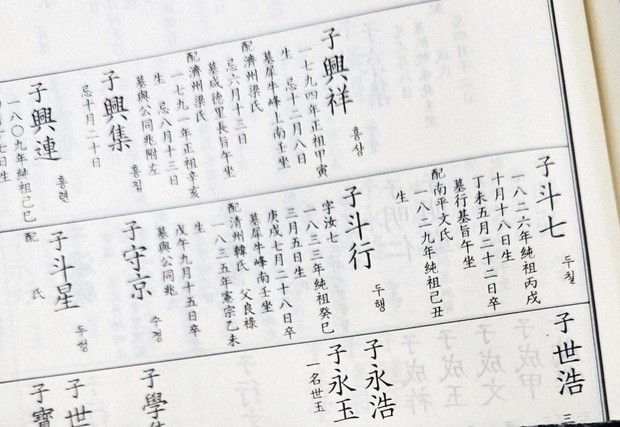 子興祥 홍상
一七九四年正祖甲寅
生 忌十二月八日
墓犀牛峰上南壬坐
配濟州梁氏
生 忌六月十三日
墓咸德里長旨午坐
配濟州梁氏
一七九一年正祖辛亥
生 忌八月十三日
墓與公同兆附左
子興集 홍집
忌十月二十日
子興連 홍련
一八〇九年純祖己巳
子斗七 두칠
一八二六年純祖丙戌
十月十八日生
丁未五月二十二日卒
墓行基旨午坐
配南平文氏
一八二九年純祖己丑
生
子斗行 두행
字汝七
一八三三年純祖癸巳
三月五日生
庚戌七月二十八日卒
墓犀牛峰南壬坐
配濟州韓氏 父良祿
一八三五年憲宗乙未
生
戊午九月十五日卒
墓與公同兆
子守京 수경
子斗星 두성
配 氏
子世浩
子永浩
子永玉
一名世玉
子學
子世
子寶